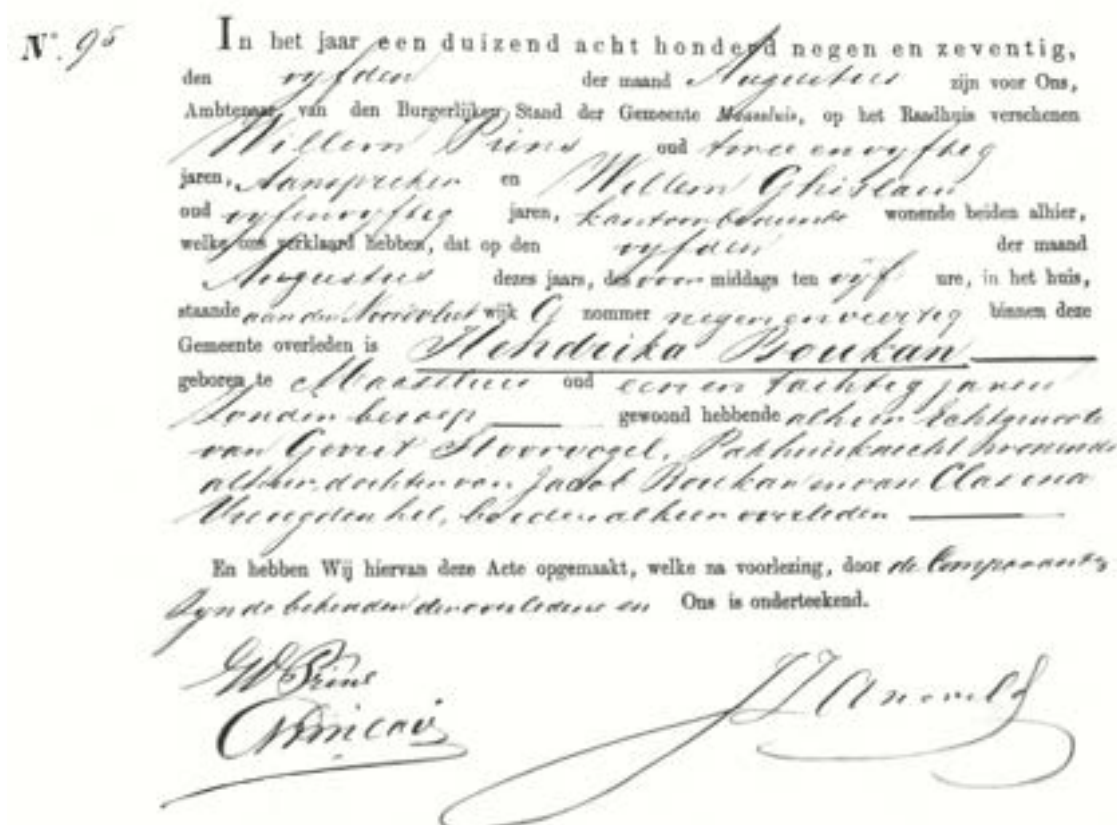 Nº. 95
In het jaar een duizend acht honderd negen en zeventig,
den vyfden der maand Augustus zijn voor Ons,
Ambtenaar van den Burgerlijken Stand der Gemeente Maassluis, op het Raadhuis verschenen
Willem Prins oud twee en vyftig
jaren, Aanspreker en Willem Ghislain
oud vyf en vyftig jaren, kantoorbediende wonende beiden alhier,
welke ons verklaard hebben, dat op den vyfden der maand
Augustus dezes jaars, des voor middags ten vyf ure, in het huis,
staande aan den Noordvliet wijk G nommer negen en veertig binnen deze
Gemeente overleden is Hendrika Boukan
geboren te Maassluis oud een en tachtig jaren
zonder beroep gewoond hebbende alhier Echtgenoote
van Gerrit Stoorvogel, Pakhuisknecht wonende
alhier, dochter van Jacob Boukan en van Clasina
beiden alhier overleden
En hebben Wij hiervan deze Acte opgemaakt, welke na voorlezing, door de Comparanten
zynde bekenden der overledene en Ons is onderteekend.
W Prins